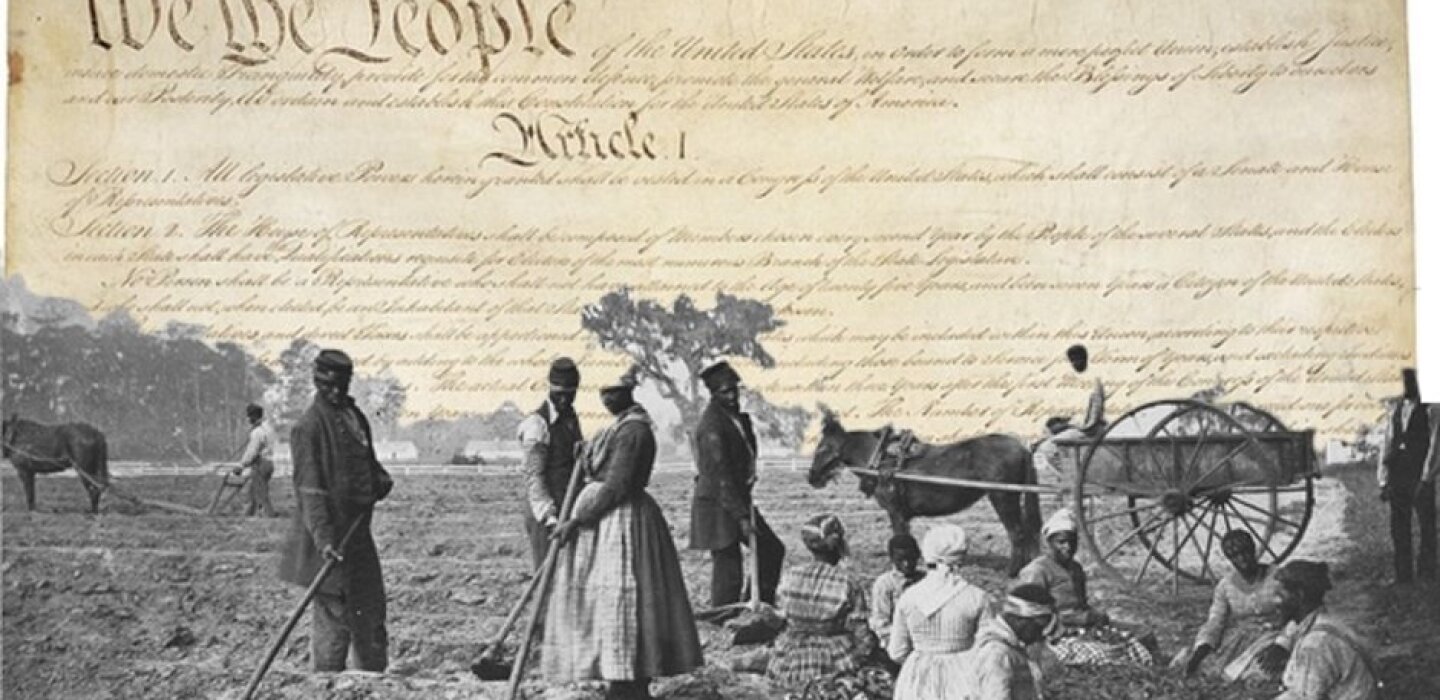 We the People of the United States, in Order to form a more perfect Union, establish Justice,
insure domestic Tranquility, provide for the common defence, promote the general Welfare, and secure the Blessings of Liberty to ourselves
and our Posterity, do ordain and establish this Constitution for the United States of America.
Article. I.
Section. 1. All legislative Powers herein granted shall be vested in a Congress of the United States, which shall consist of a Senate and House
of Representatives.
Section. 2. The House of Representatives shall be composed of Members chosen every second Year by the People of the several States, and the Electors
in each State shall have Qualifications requisite for Electors of the most numerous Branch of the State Legislature.
No Person shall be a Representative who shall not have attained to the Age of twenty five Years, and been seven Years a Citizen of the United States,
who shall not, when elected, be an Inhabitant of that
and direct Taxes shall be which may be included within this Union, according to their respective
to the whole those bound to Service Term of Years, and excluding Indians
The actual three Years after the first Meeting of the Congress of the United
The Number of